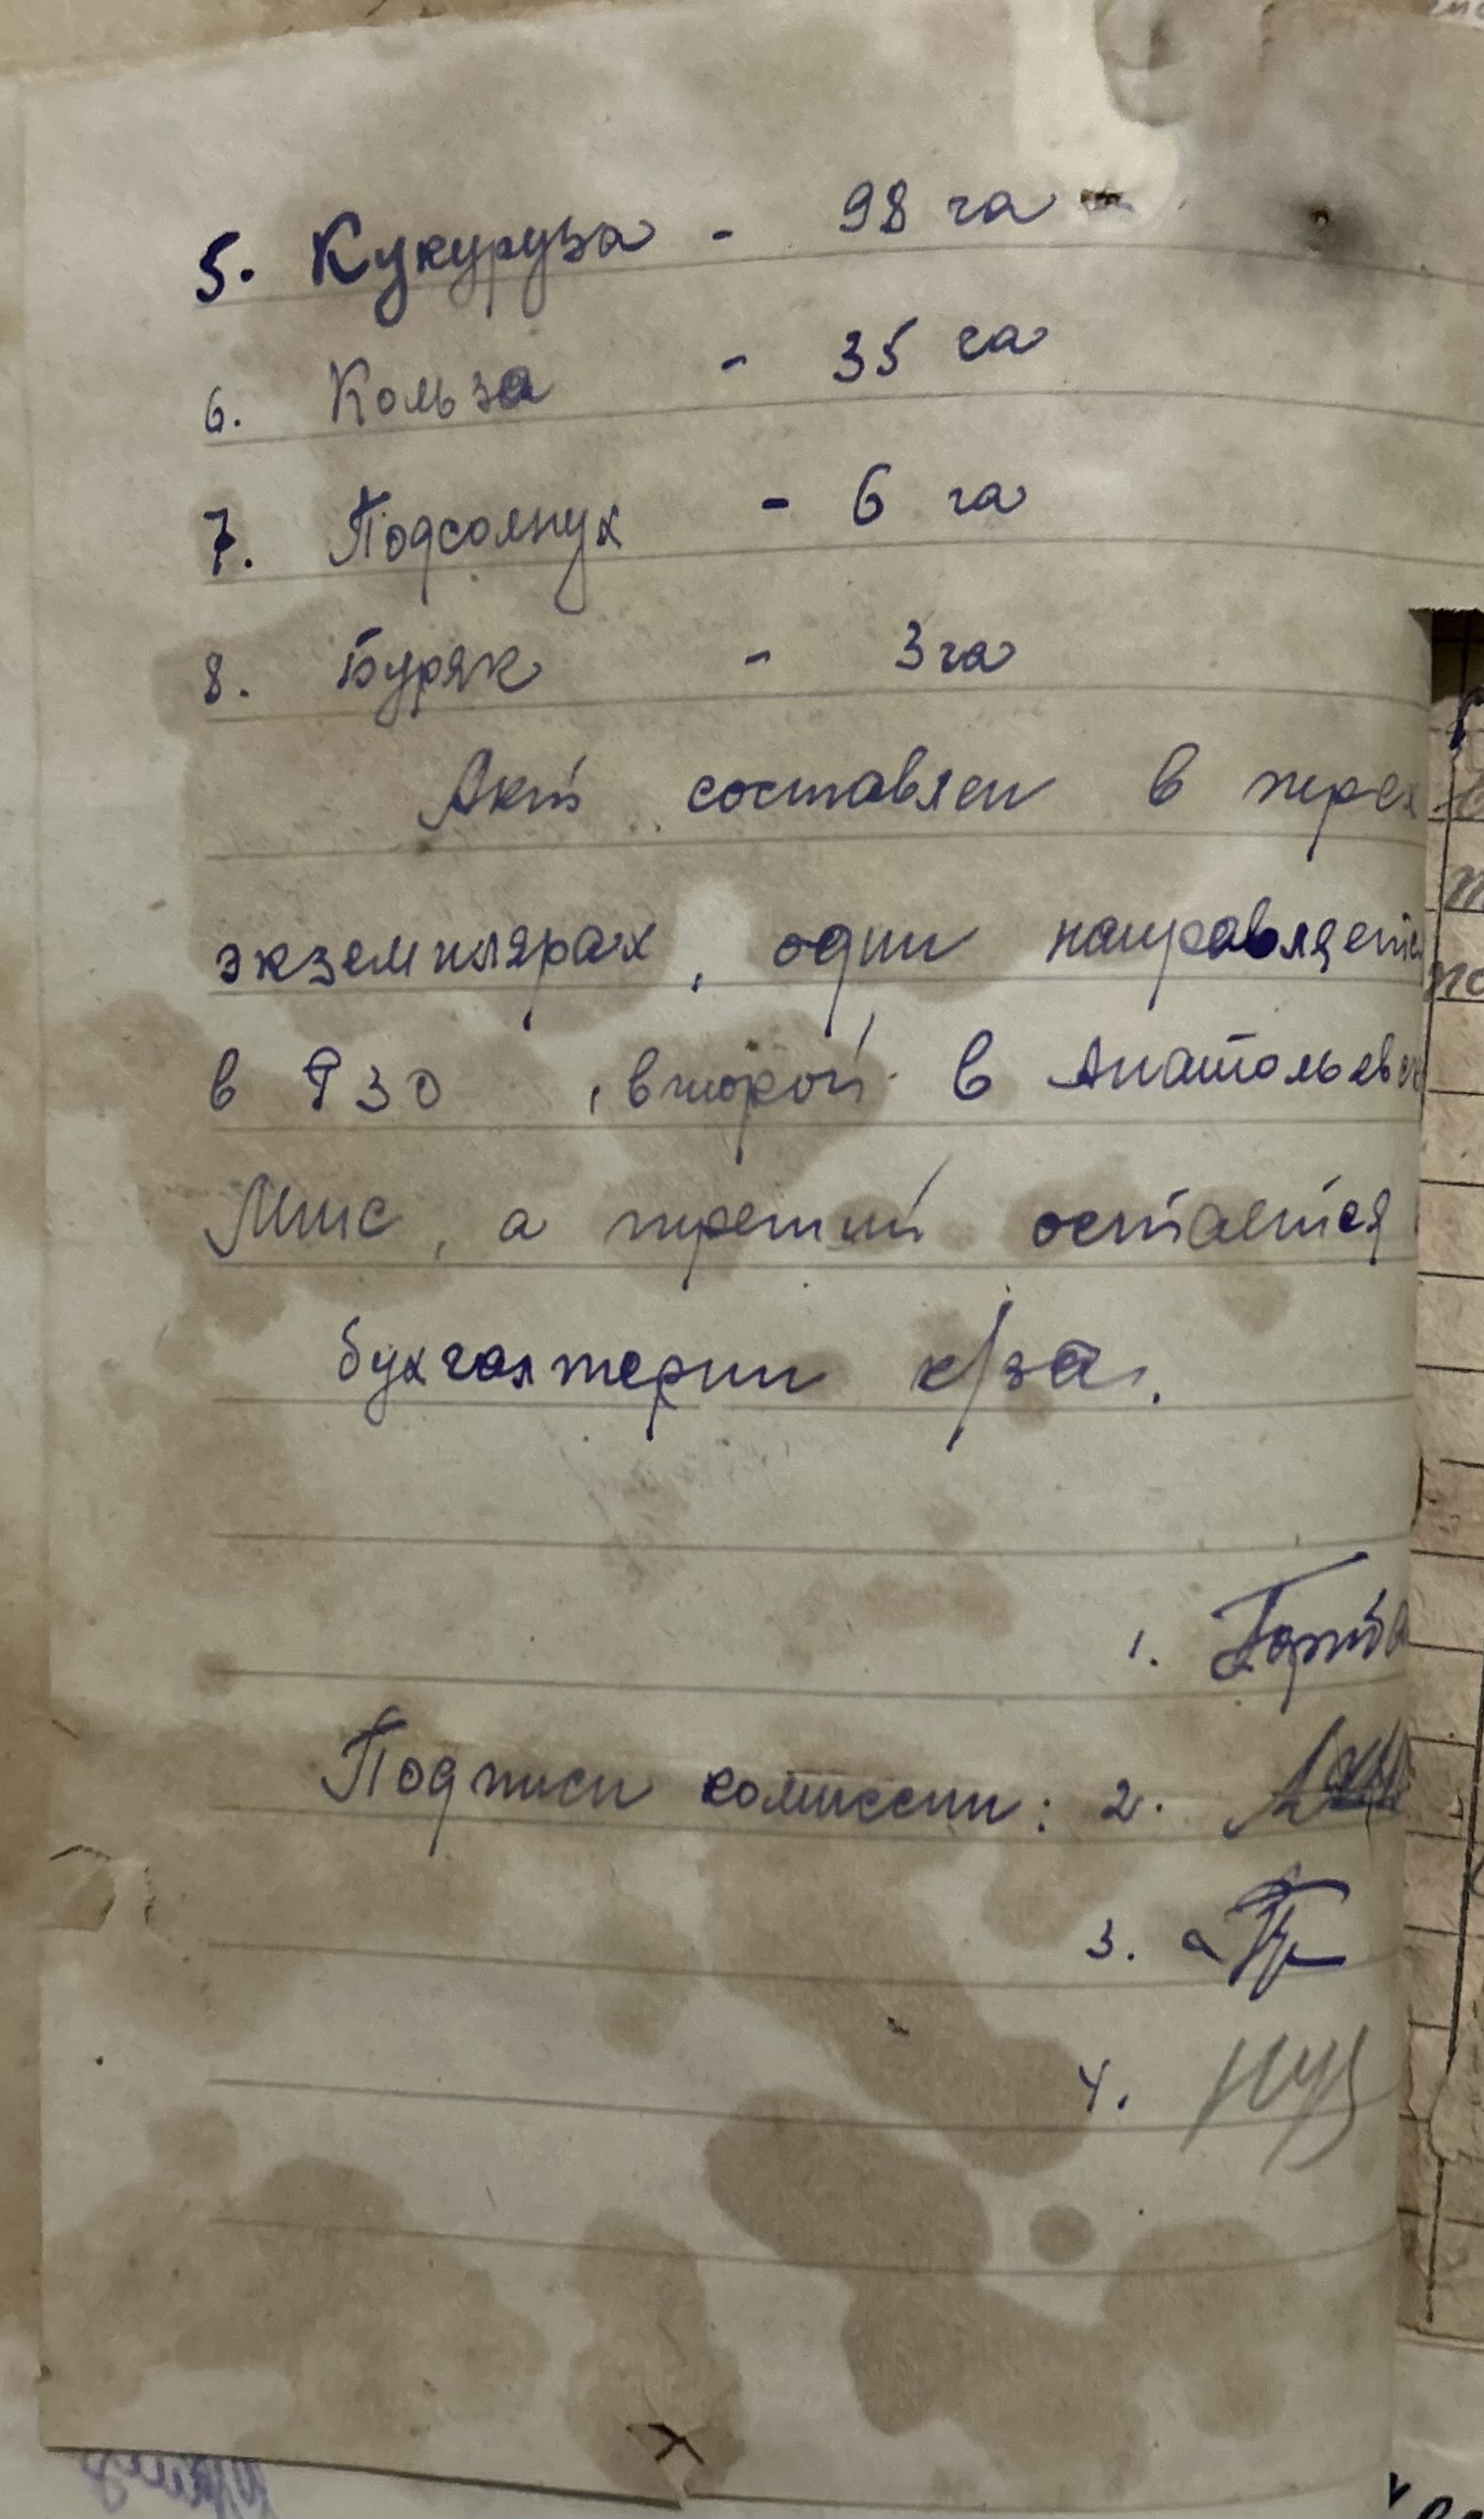 5. Кукуруза - 98 га
6. Кольза - 35 га
7. Подсолнух - 6 га
8. Буряк - 3 га
Акт составлен в трех
экземплярах, один направляется
в РЗО, второй в Анатольевск
Мтс, а третий остается
бухгалтерии к/за.
1.
Подписи комиссии: 2.
3.
4.